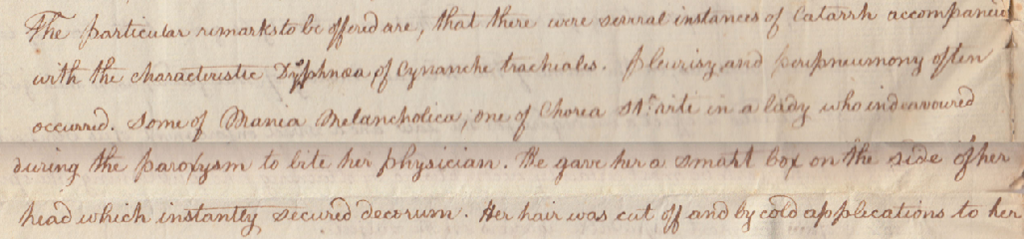 The particular remarks to be offered are, that there were several instances of Catarrh accompanied
with the characteristic Dysphnœa of Cynanche trachiales. Pleurisy and peripneumony often
occurred. Some of Mania Melancholica; one of Chorea St. viti in a lady who indeavoured
during the paroxysm to bite her physician. He gave her a smart box on the side of her
head which instantly secured decorum. Her hair was cut off and by cold applications to her